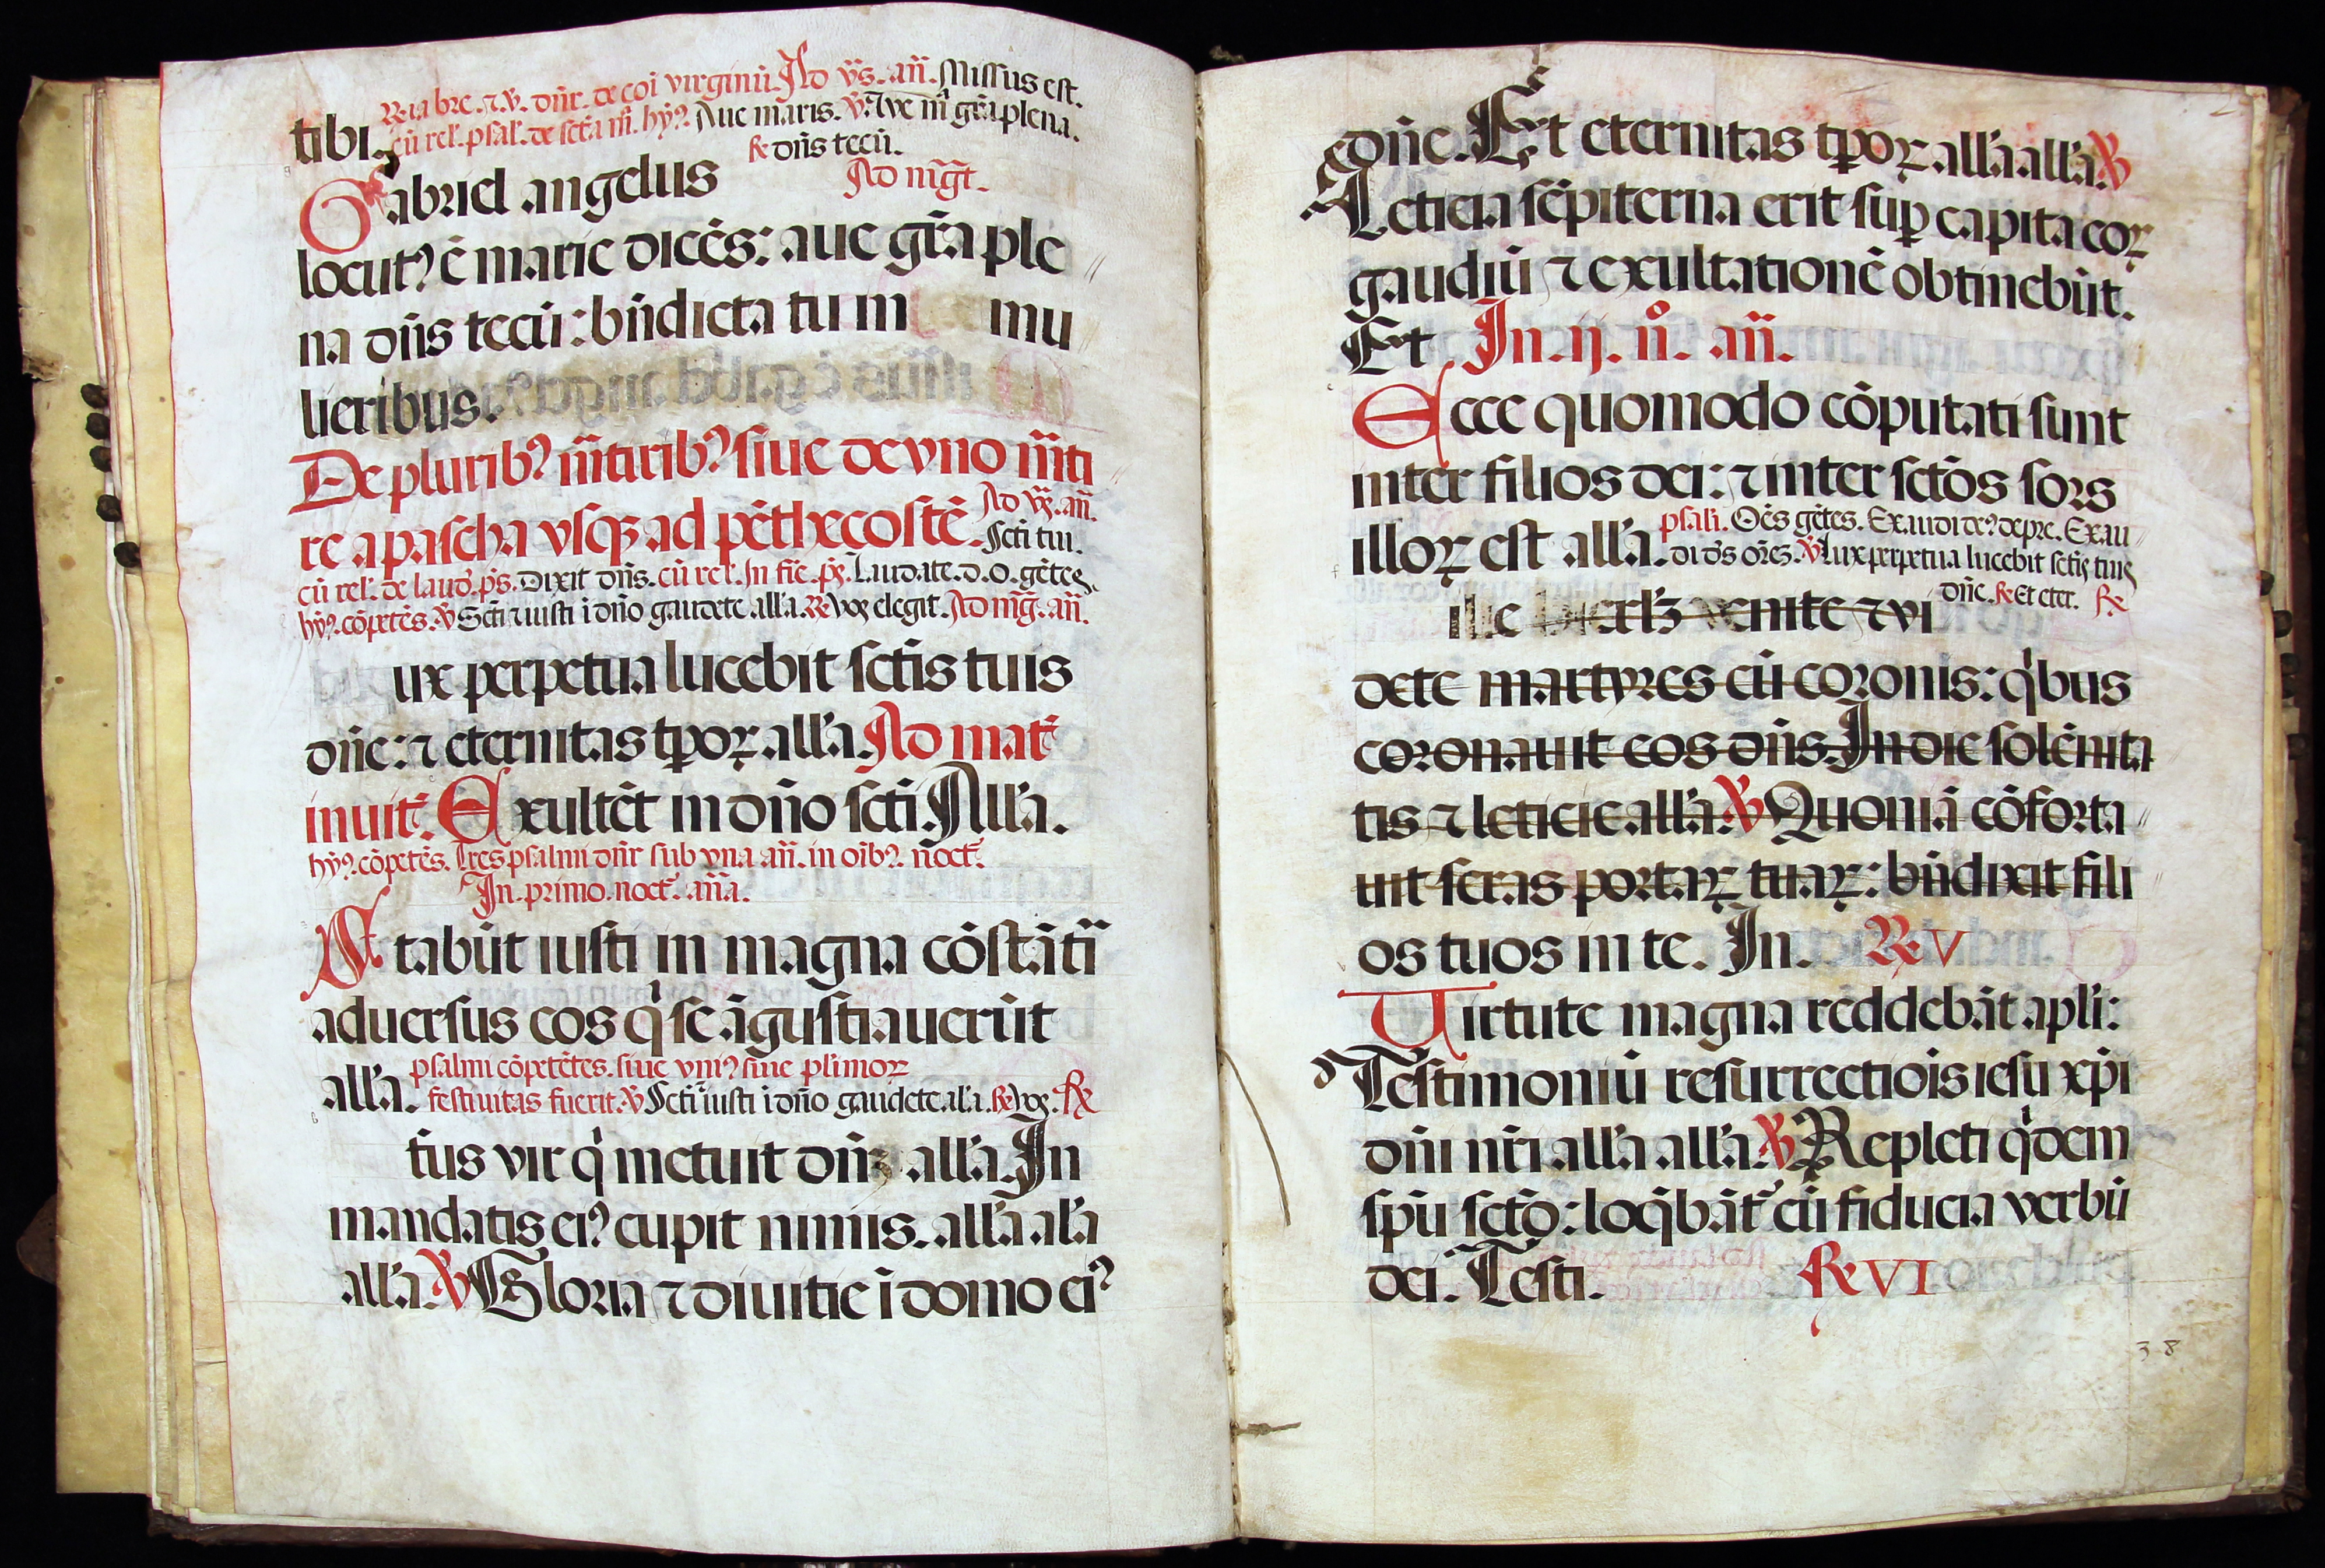 R̃ia bre. ⁊.v̄. dn̄r. de coı̄ virginū. Ad vs̄. an̄. Missus est.
tibi. cū rel̄. psal̄. de sctā m̄. hȳꝰ. Aue maris. v̄. Aue m̄ grā plena.
R̄ dn̄s tecū.
Gabriel angelus Ad mḡt.
locutꝰ ē marie dicēs: aue grā ple
na dn̄s tecū: bn̄dicta tu in mu
lieribus.
De pluribꝰ m̄tiribꝰ siue de vno m̄ti
re a pascha vsqꝫ ad pēthecostē. Ad vs̄. an̄.
Scti tui.
cū rel̄. de laud̄. ps̄. Dixit dn̄s. cū rel̄. In fīe. ps̄. Laudate. d. O. gētes.
hȳꝰ. cōpetēs. v̄ Scti ⁊ iusti ı̄ dn̄o gaudete all'a. R̄ Vos elegit. Ad mḡ. an̄.
ux perpetua lucebit sctis tuis
dn̄e: ⁊ eternitas tp̄oꝝ all'a. Ad mat̄
inuit̄. Exultēt in dn̄o scti. All'a.
hȳꝰ. cōpetēs. Tres psalmi dn̄r sub vna an̄. in oı̄bꝰ. noct̄.
In. primo. noct̄. an̄a.
Stabūt iusti in magna cōstātı̄
aduersus eos q̄ se āgustiauerūt
all'a. psalmi cōpetētes. siue vniꝰ siue plīmoꝝ
festiuitas fuerit. v̄ Scti ⁊ iusti ı̄ dn̄o gaudete. al'a. R̄ Vos. R̄
tūs vir q̄ metuit dn̄ all'a. In
mandatis eiꝰ cupit nimis. all'a al'a
all'a. v̄ Gloria ⁊ diuitie ı̄ domo eiꝰ
dn̄e. Et eternitas tp̄oꝝ all'a all'a. v̄
Leticia sēpiterna erit suꝑ capita eoꝝ
gaudiū ⁊ exultationē obtinebūt.
Et In. ij. n̊. an̄.
Ecce quomodo cōputati sunt
inter filios dei: ⁊ inter sctōs sors
illoꝝ est all'a. psalı̄. Oēs gētes. Exaudi deꝰ depre. Exau
di ds̄ orē3. v̄ Lux perpetua lucebit sctis tuis
dn̄e. R̄ Et eter. R̄
ilie venite ⁊ vi
dete martyres cū coronis: q̄bus
coronauit eos dn̄s. In die solēnita
tis ⁊ leticie all'a. v̄ Quoniā cōforta
uit seras portaꝝ tuaꝝ: bn̄dixit fili
os tuos in te. In. R̄ V
Uirtute magna reddebāt apl̄i:
Testimoniū resurrectiōis iesu xp̄i
dn̄i nr̄i all'a all'a. v̄ Repleti q̄dem
spū sctō: loq̄bāt̄ cū fiducia verbū
dei. Testi. R̄ VI
38